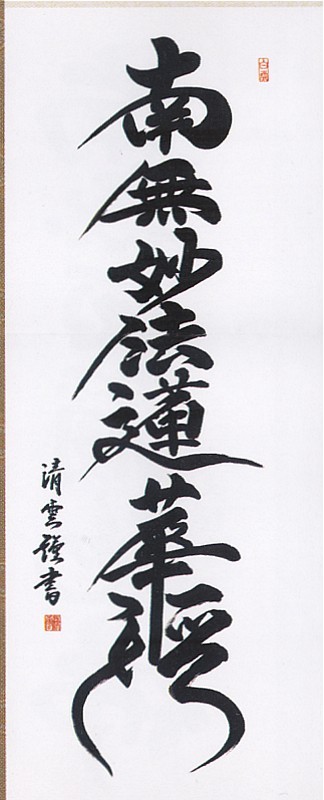 南無妙法蓮華経
清雲謹書